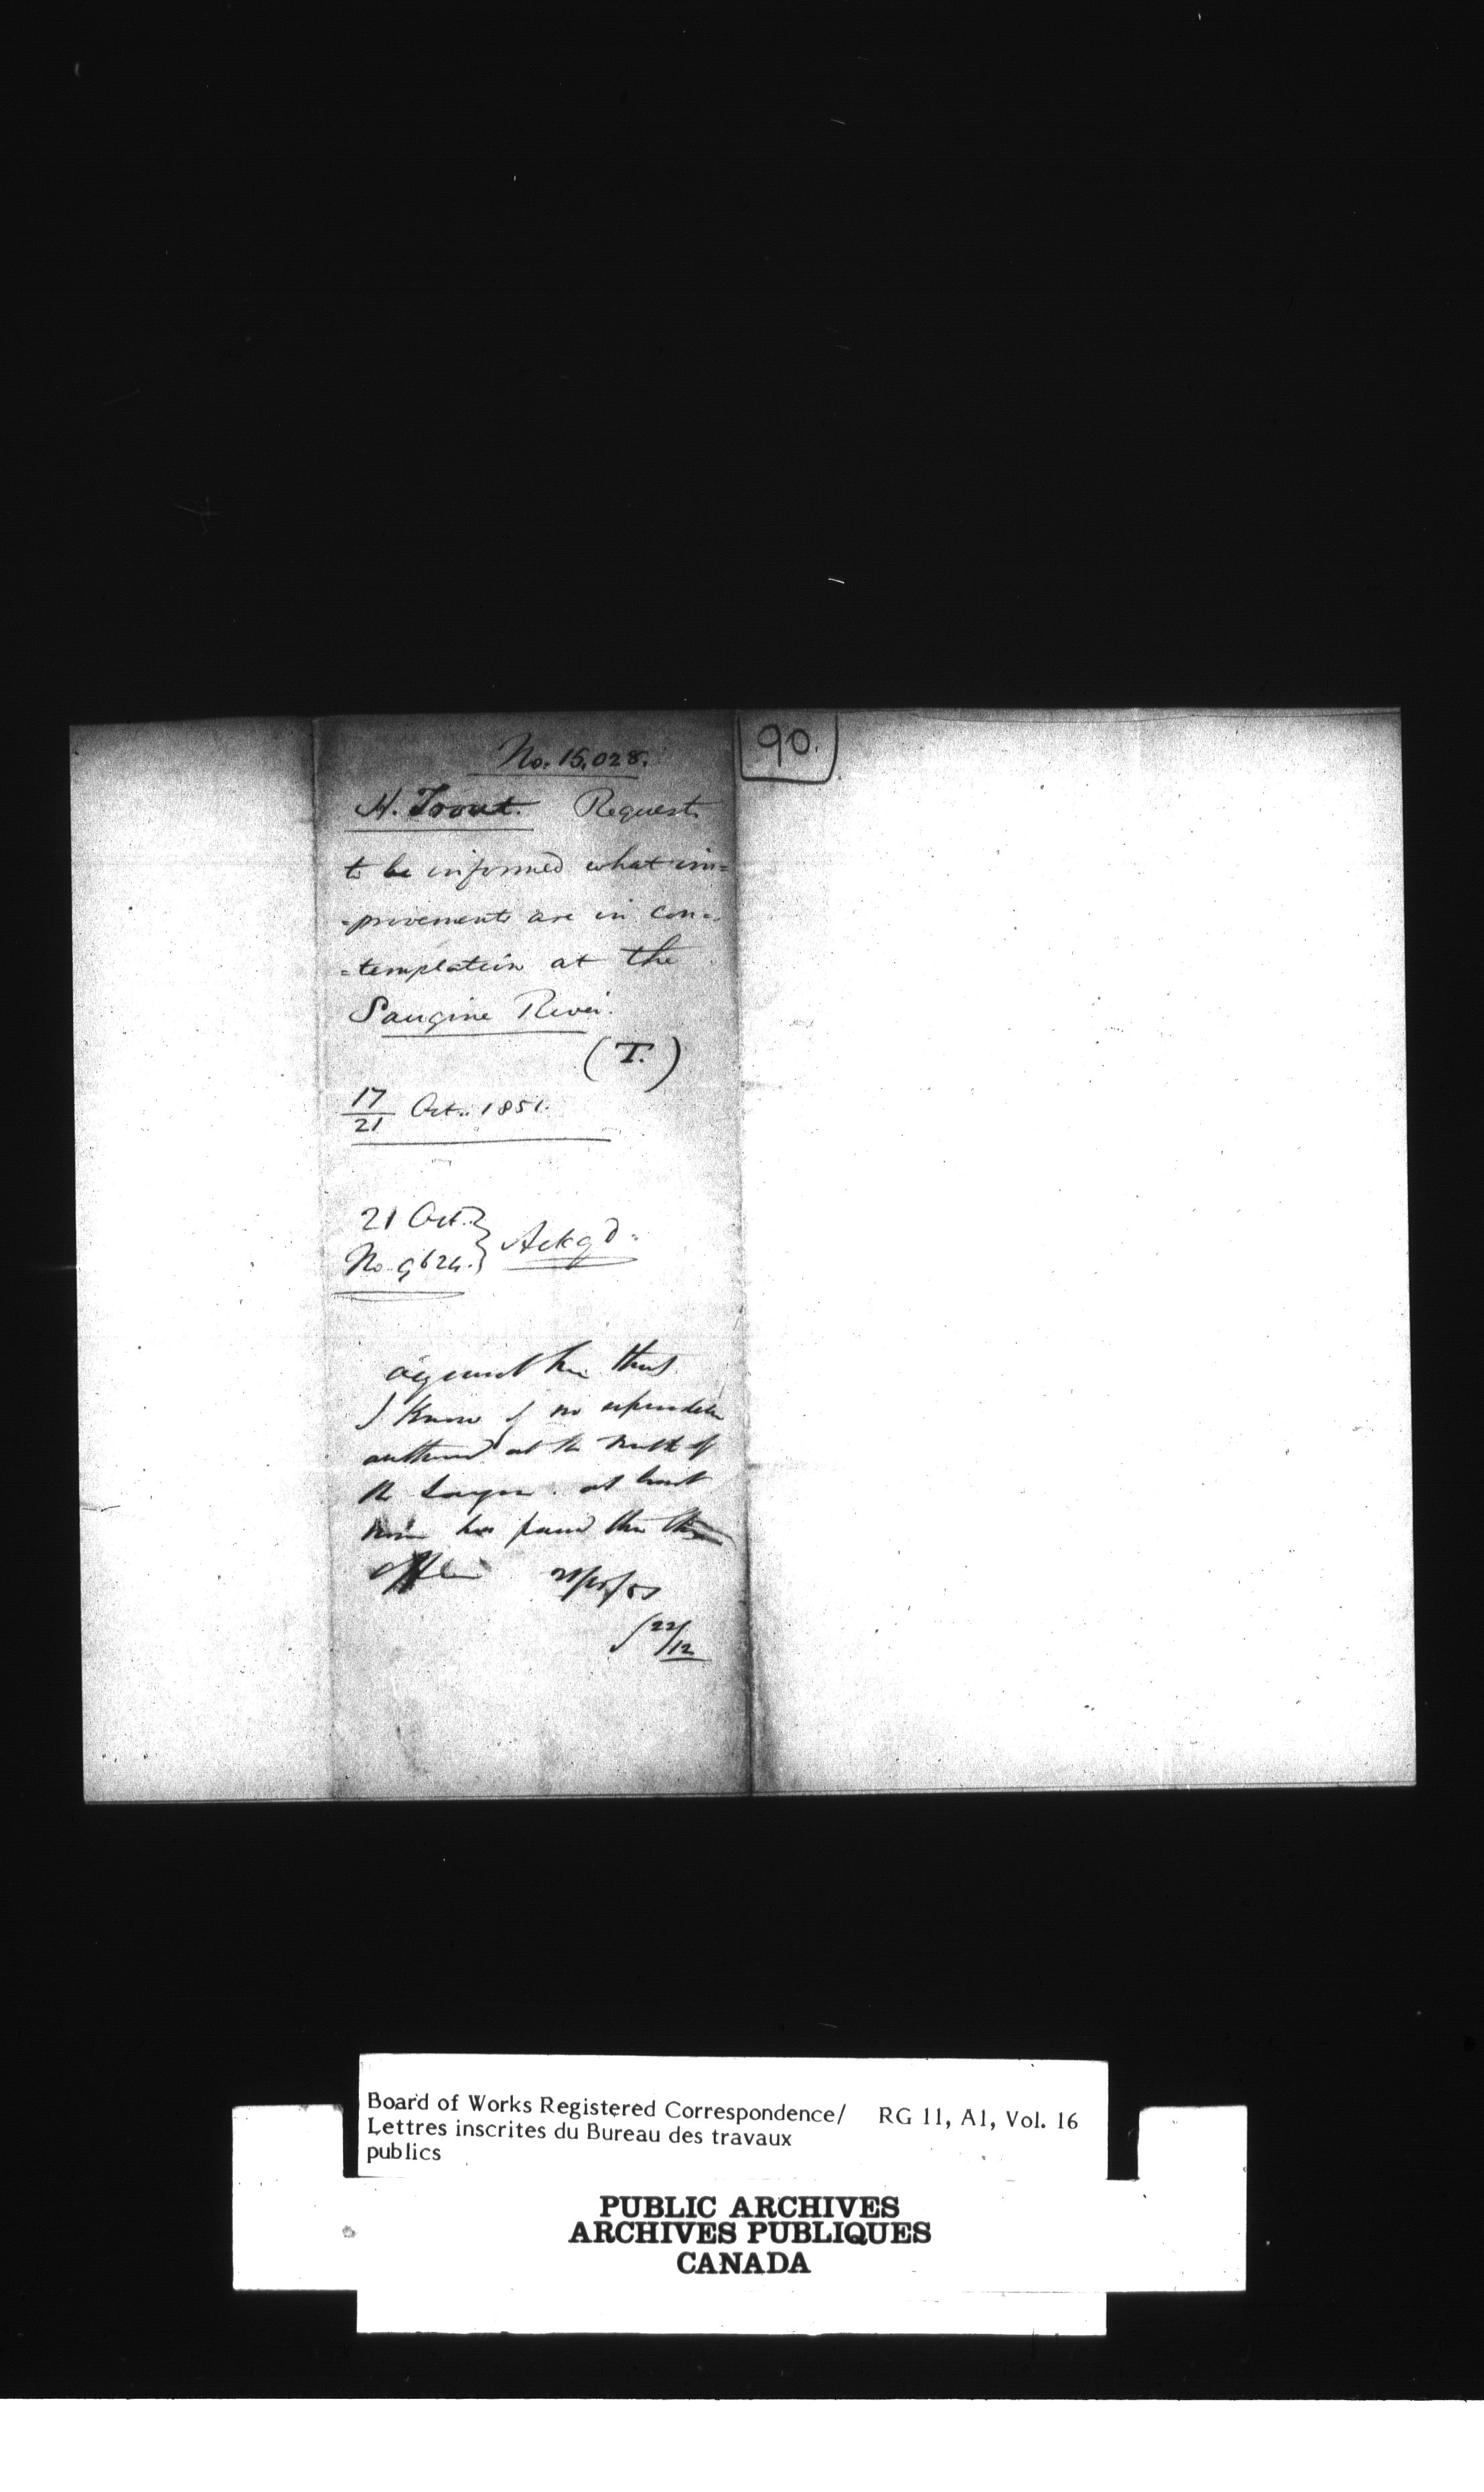 No. 15,028.
90.
H. Trout. Request
to be informed what im=
=provements are in con=
=templation at the
Saugine River.
(T.)
17/21 Oct. 1851.
21 Oct.
No. 9624. } Ackgd.
I know of no
at the mouth of
the at least
has this
Office
22/12
Board of Works Registered Correspondence/ RG 11, A1, Vol. 16
Lettres inscrites du Bureau des travaux
publics
PUBLIC ARCHIVES
ARCHIVES PUBLIQUES
CANADA